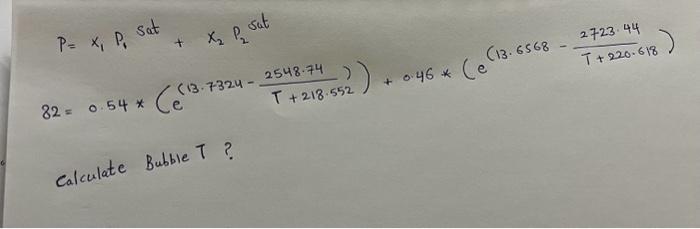 P = x₁ P₁ˢᵃᵗ + x₂ P₂ˢᵃᵗ
82 = 0.54 * (e^(13.7324 - 2548.74 / (T + 218.552))) + 0.46 * (e^(13.6568 - 2723.44 / (T + 220.618)))
Calculate Bubble T ?